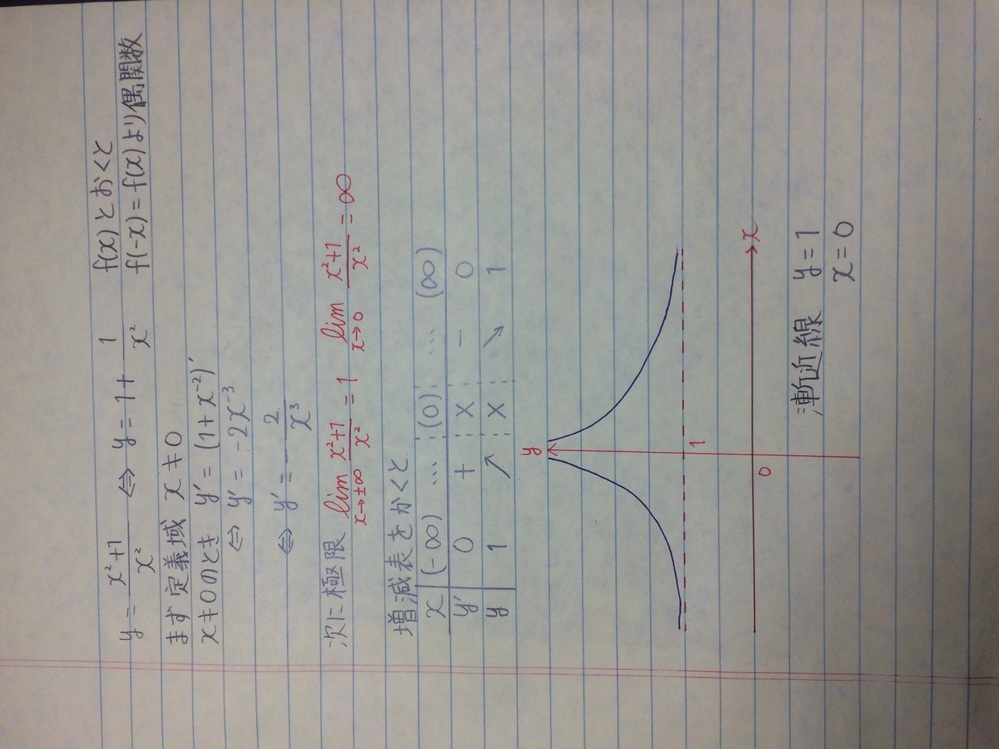 y = (x²+1)/x² ⇔ y = 1 + 1/x² f(x)とおくと
f(-x) = f(x)より偶関数
まず定義域 x≠0
x≠0のとき y' = (1+x⁻²)'
⇔ y' = -2x⁻³
⇔ y' = -2/x³
次に極限 lim x→±∞ (x²+1)/x² = 1 lim x→0 (x²+1)/x² = ∞
増減表をかくと
x (-∞) … (0) … (∞)
y' 0 + × - 0
y 1 ↗ × ↘ 1
y
1
0
x
漸近線 y=1
x=0